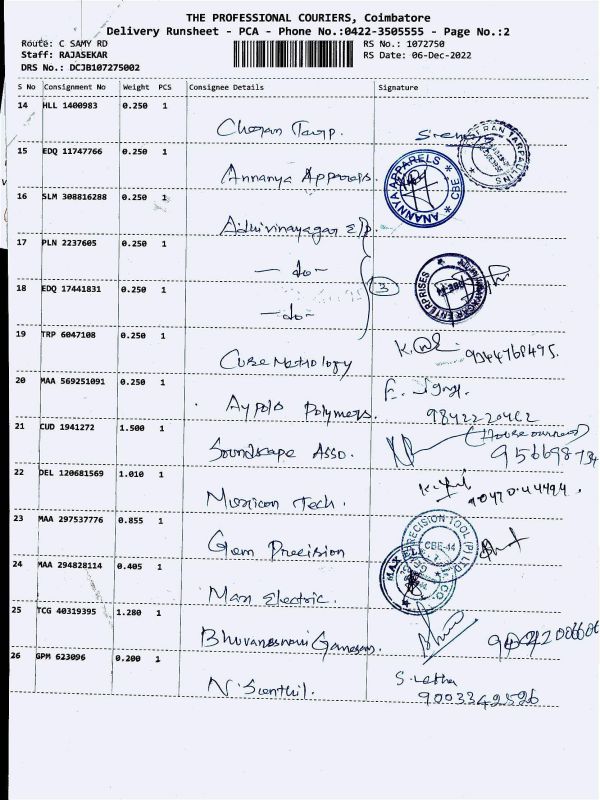 THE PROFESSIONAL COURIERS, Coimbatore
Delivery Runsheet - PCA - Phone No.:0422-3505555 - Page No.:2
Route: C SAMY RD
RS No.: 1072750
Staff: RAJASEKAR
RS Date: 06-Dec-2022
DRS No.: DCJB107275002
S No Consignment No Weight PCS Consignee Details Signature
14 HLL 1400983 0.250 1
15 EDQ 11747766 0.250 1
Annanya Apparels.
ANANNYA APPARELS * CBE *
16 SLM 308816288 0.250 1
Adhivinayagar E/p.
17 PLN 2237605 0.250 1
- do -
3
ENTERPRISES
18 EDQ 17441831 0.250 1
- do -
19 TRP 6047108 0.250 1
Cube Metrology
20 MAA 569251091 0.250 1
Aypols Polymers.
9842220462
21 CUD 1941272 1.500 1
Soundscape Asso.
(House owner)
22 DEL 120681569 1.010 1
Tech.
23 MAA 297537776 0.855 1
Gem Precision
PRECISION TOOL (P) LTD
CBE-44
24 MAA 294828114 0.405 1
Max Electric.
MAX
25 TCG 40319395 1.280 1
Bhuvaneswari Ganesan.
26 GPM 623096 0.200 1
N. Senthil.
S. Latha
9003342526